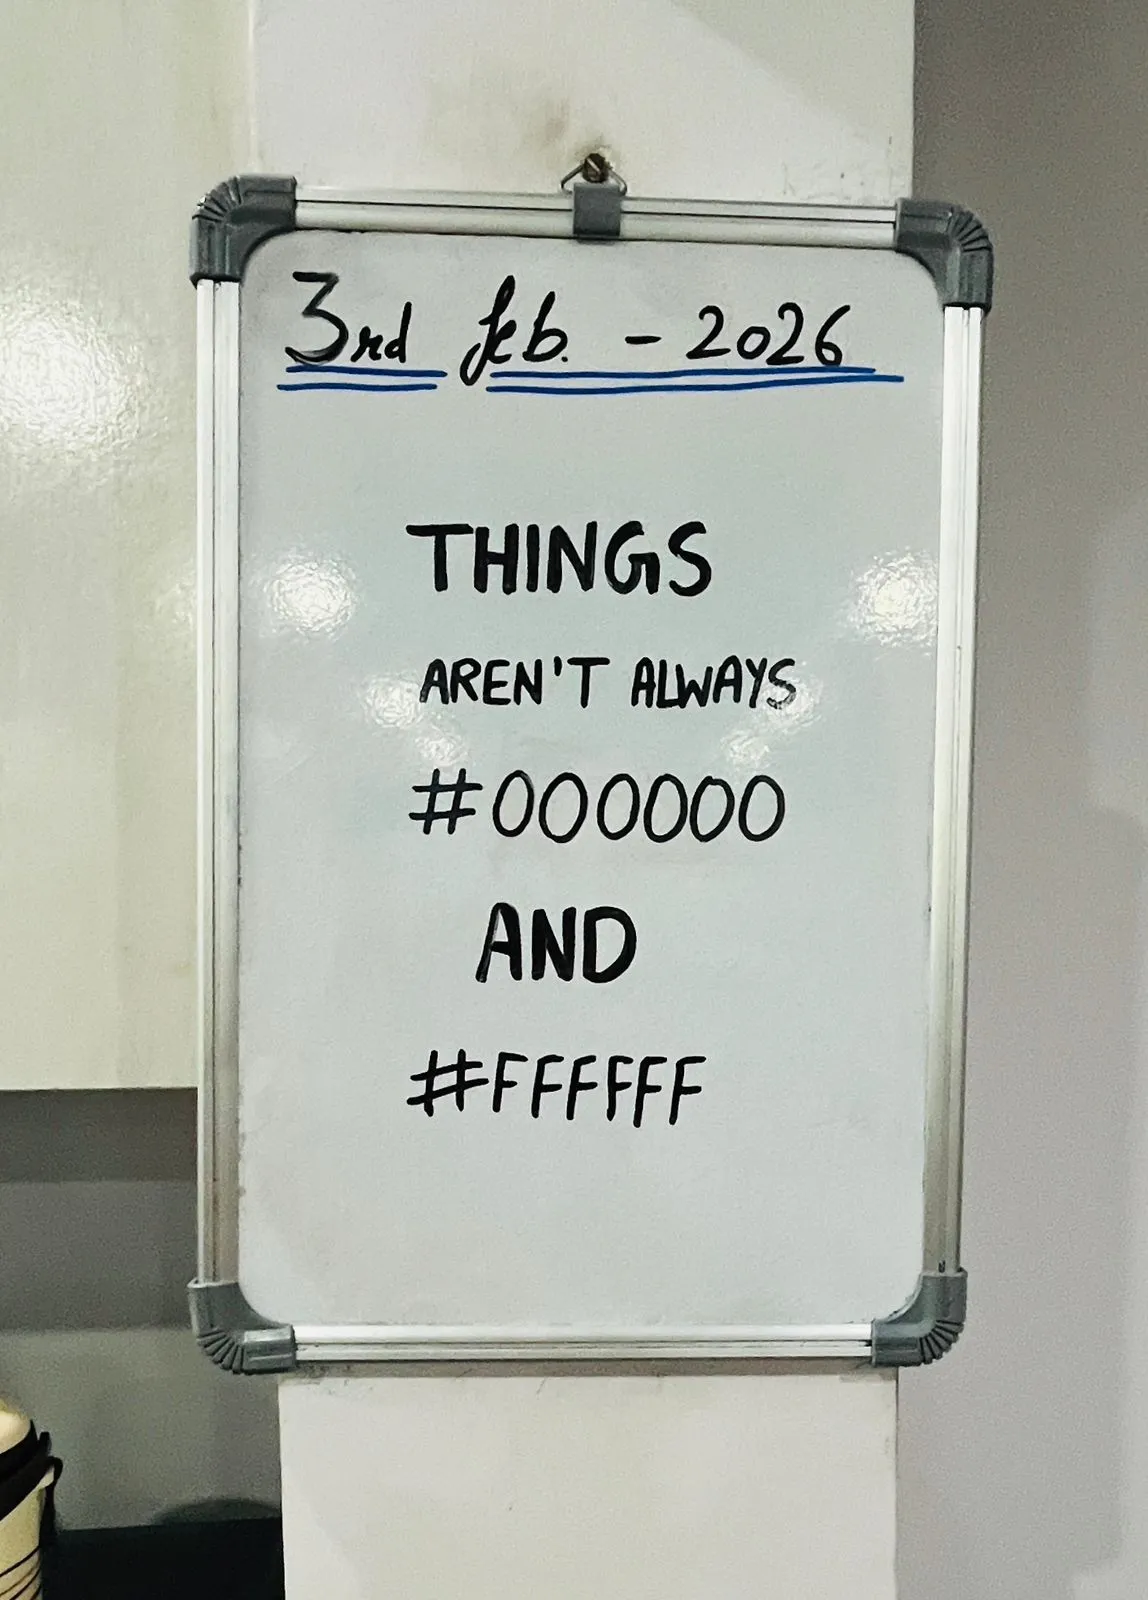 3rd feb. - 2026
THINGS
AREN'T ALWAYS
#000000
AND
#FFFFFF